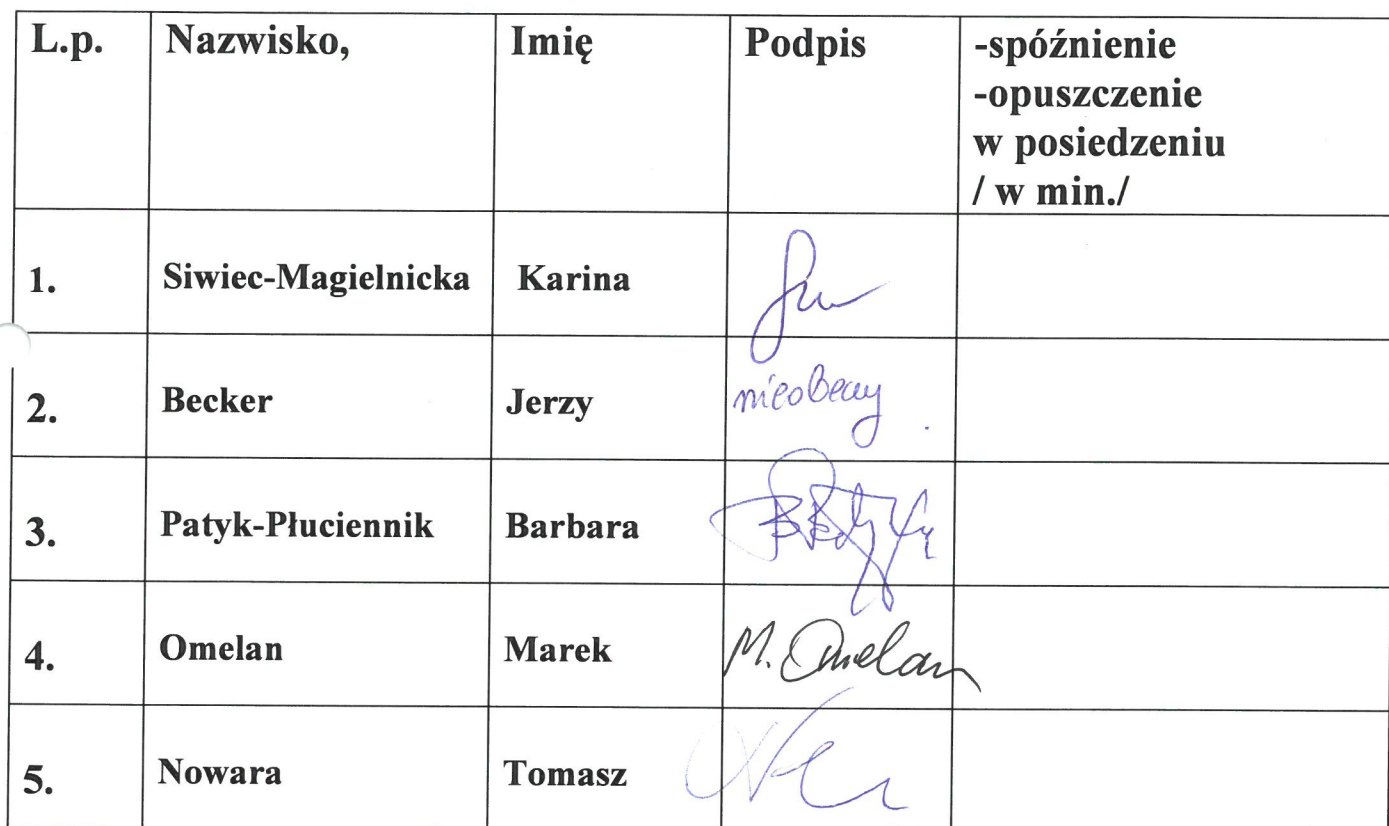 L.p. Nazwisko, Imię Podpis -spóźnienie
-opuszczenie
w posiedzeniu
/ w min./
1. Siwiec-Magielnicka Karina
2. Becker Jerzy nieobecny
3. Patyk-Płuciennik Barbara
4. Omelan Marek M. Omelan
5. Nowara Tomasz